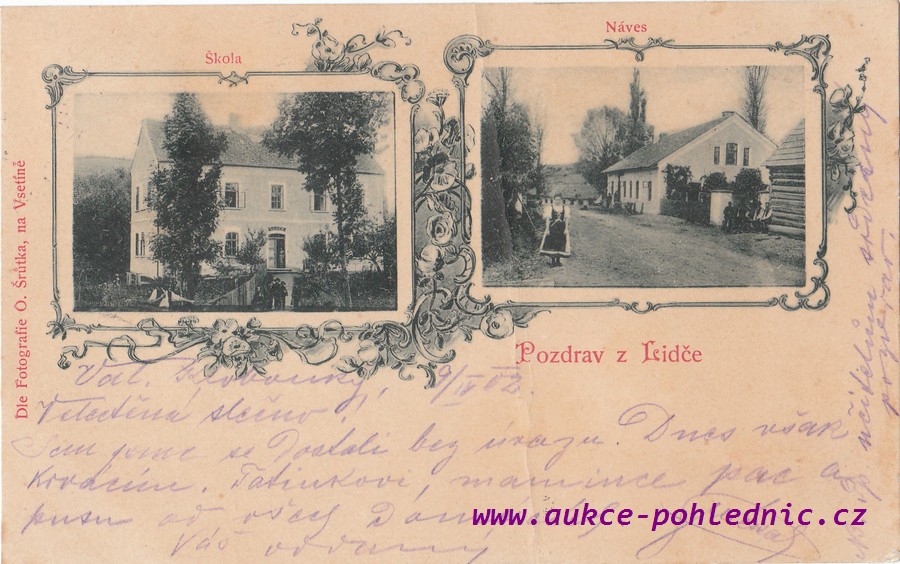 Škola
Náves
Dle Fotografie O. Šrůtka, na Vsetíně
Pozdrav z Lidče
Val. Klobouky, 9/IV 02.
Velectěná slečno!
Sem jsme se dostali bez úrazu. Dnes však
krvácím. Tatínkovi, mamince pac a
pusu od všech
Váš oddaný
www.aukce-pohlednic.cz